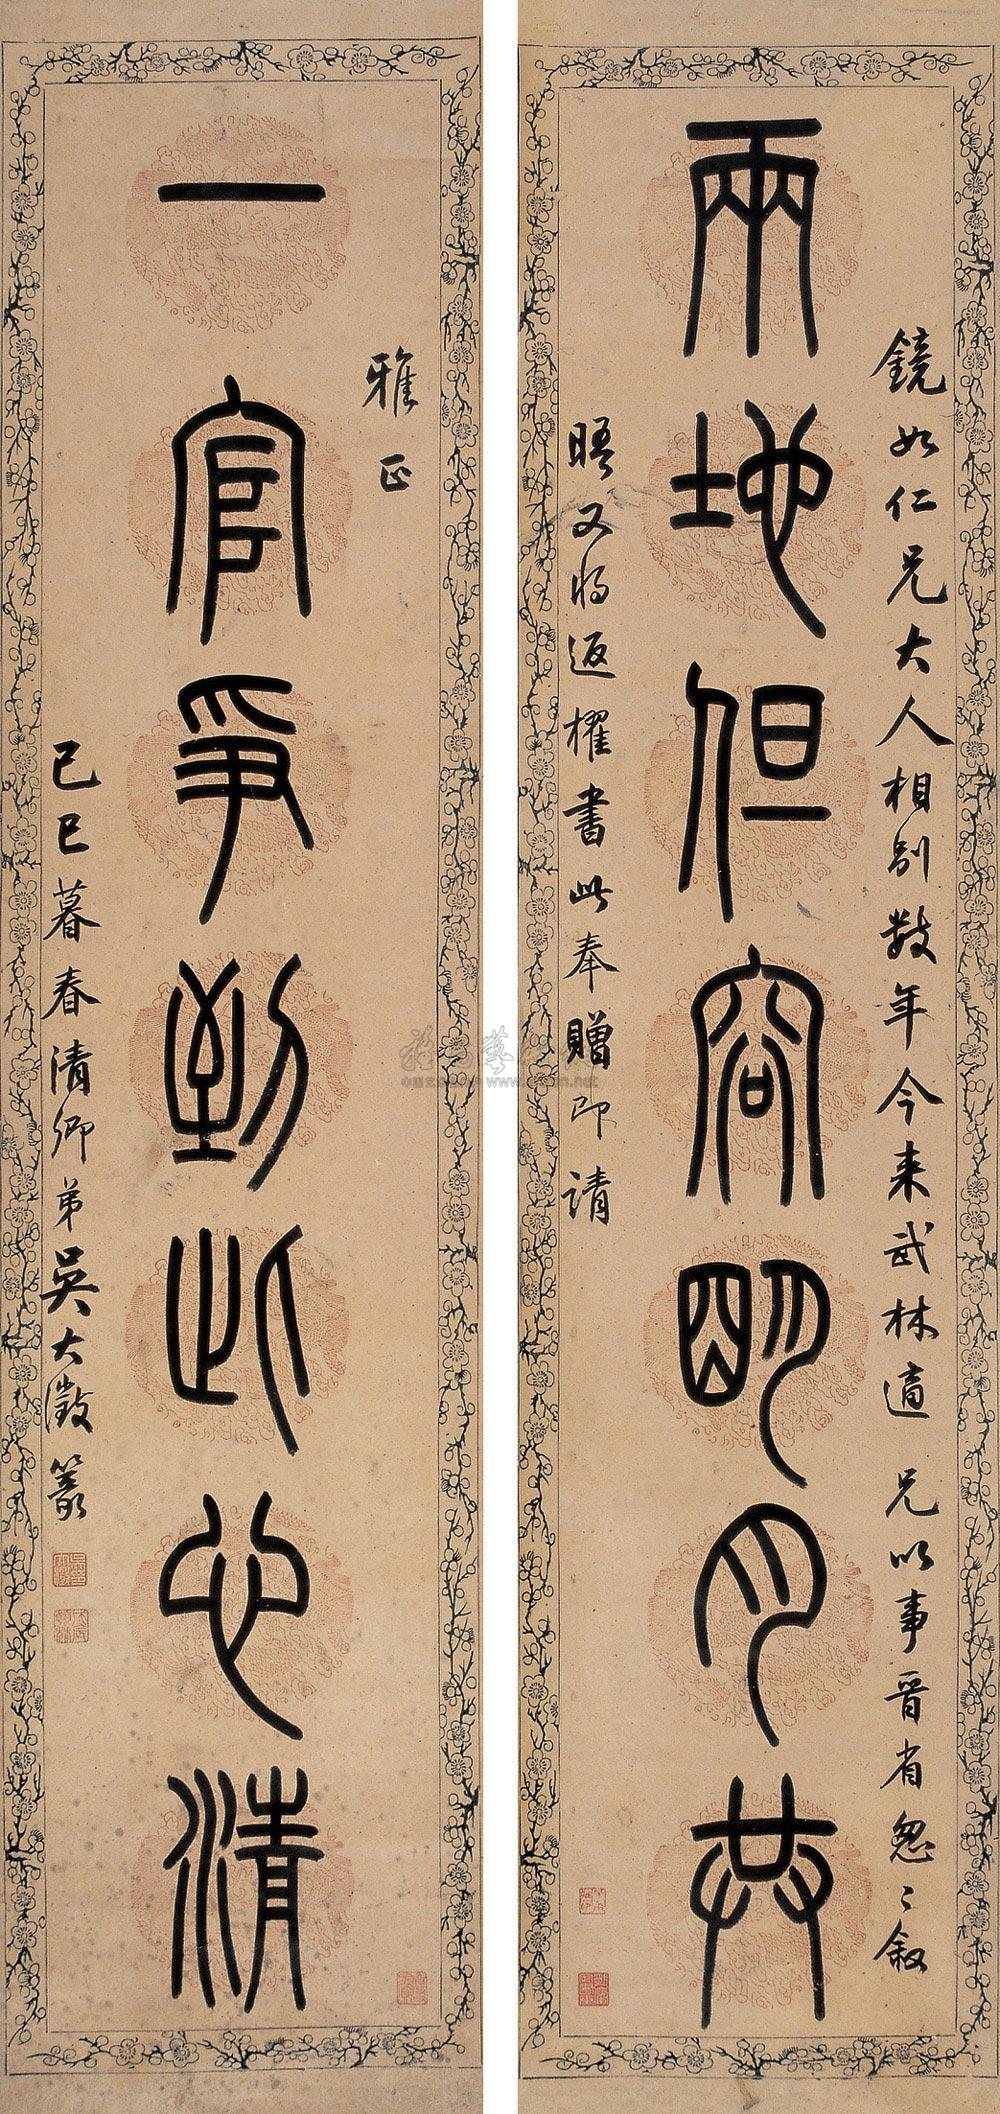 鏡如仁兄大人相別數年今来武林適 兄以事晉省怱〻叙
兩地但容明月共
晤又将返櫂書此奉贈即請
雅正
一官爭到此心清
己巳暮春清卿弟吳大澂篆